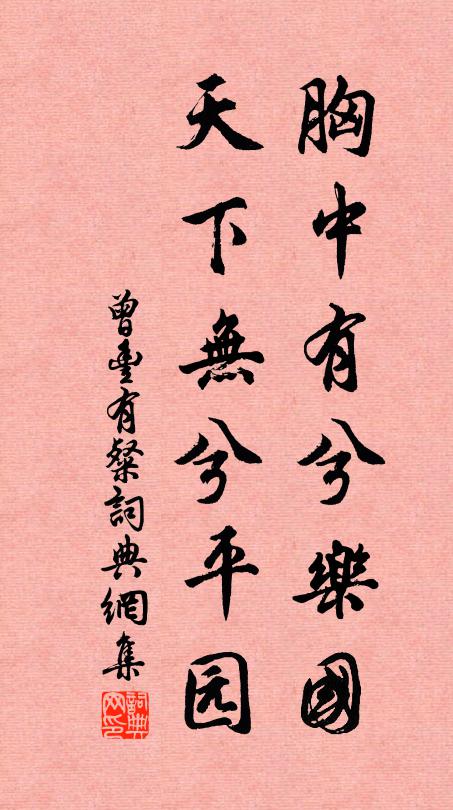 胸中有兮樂國
天下無兮平园
曾豊有粲詞典網集
詞典网印